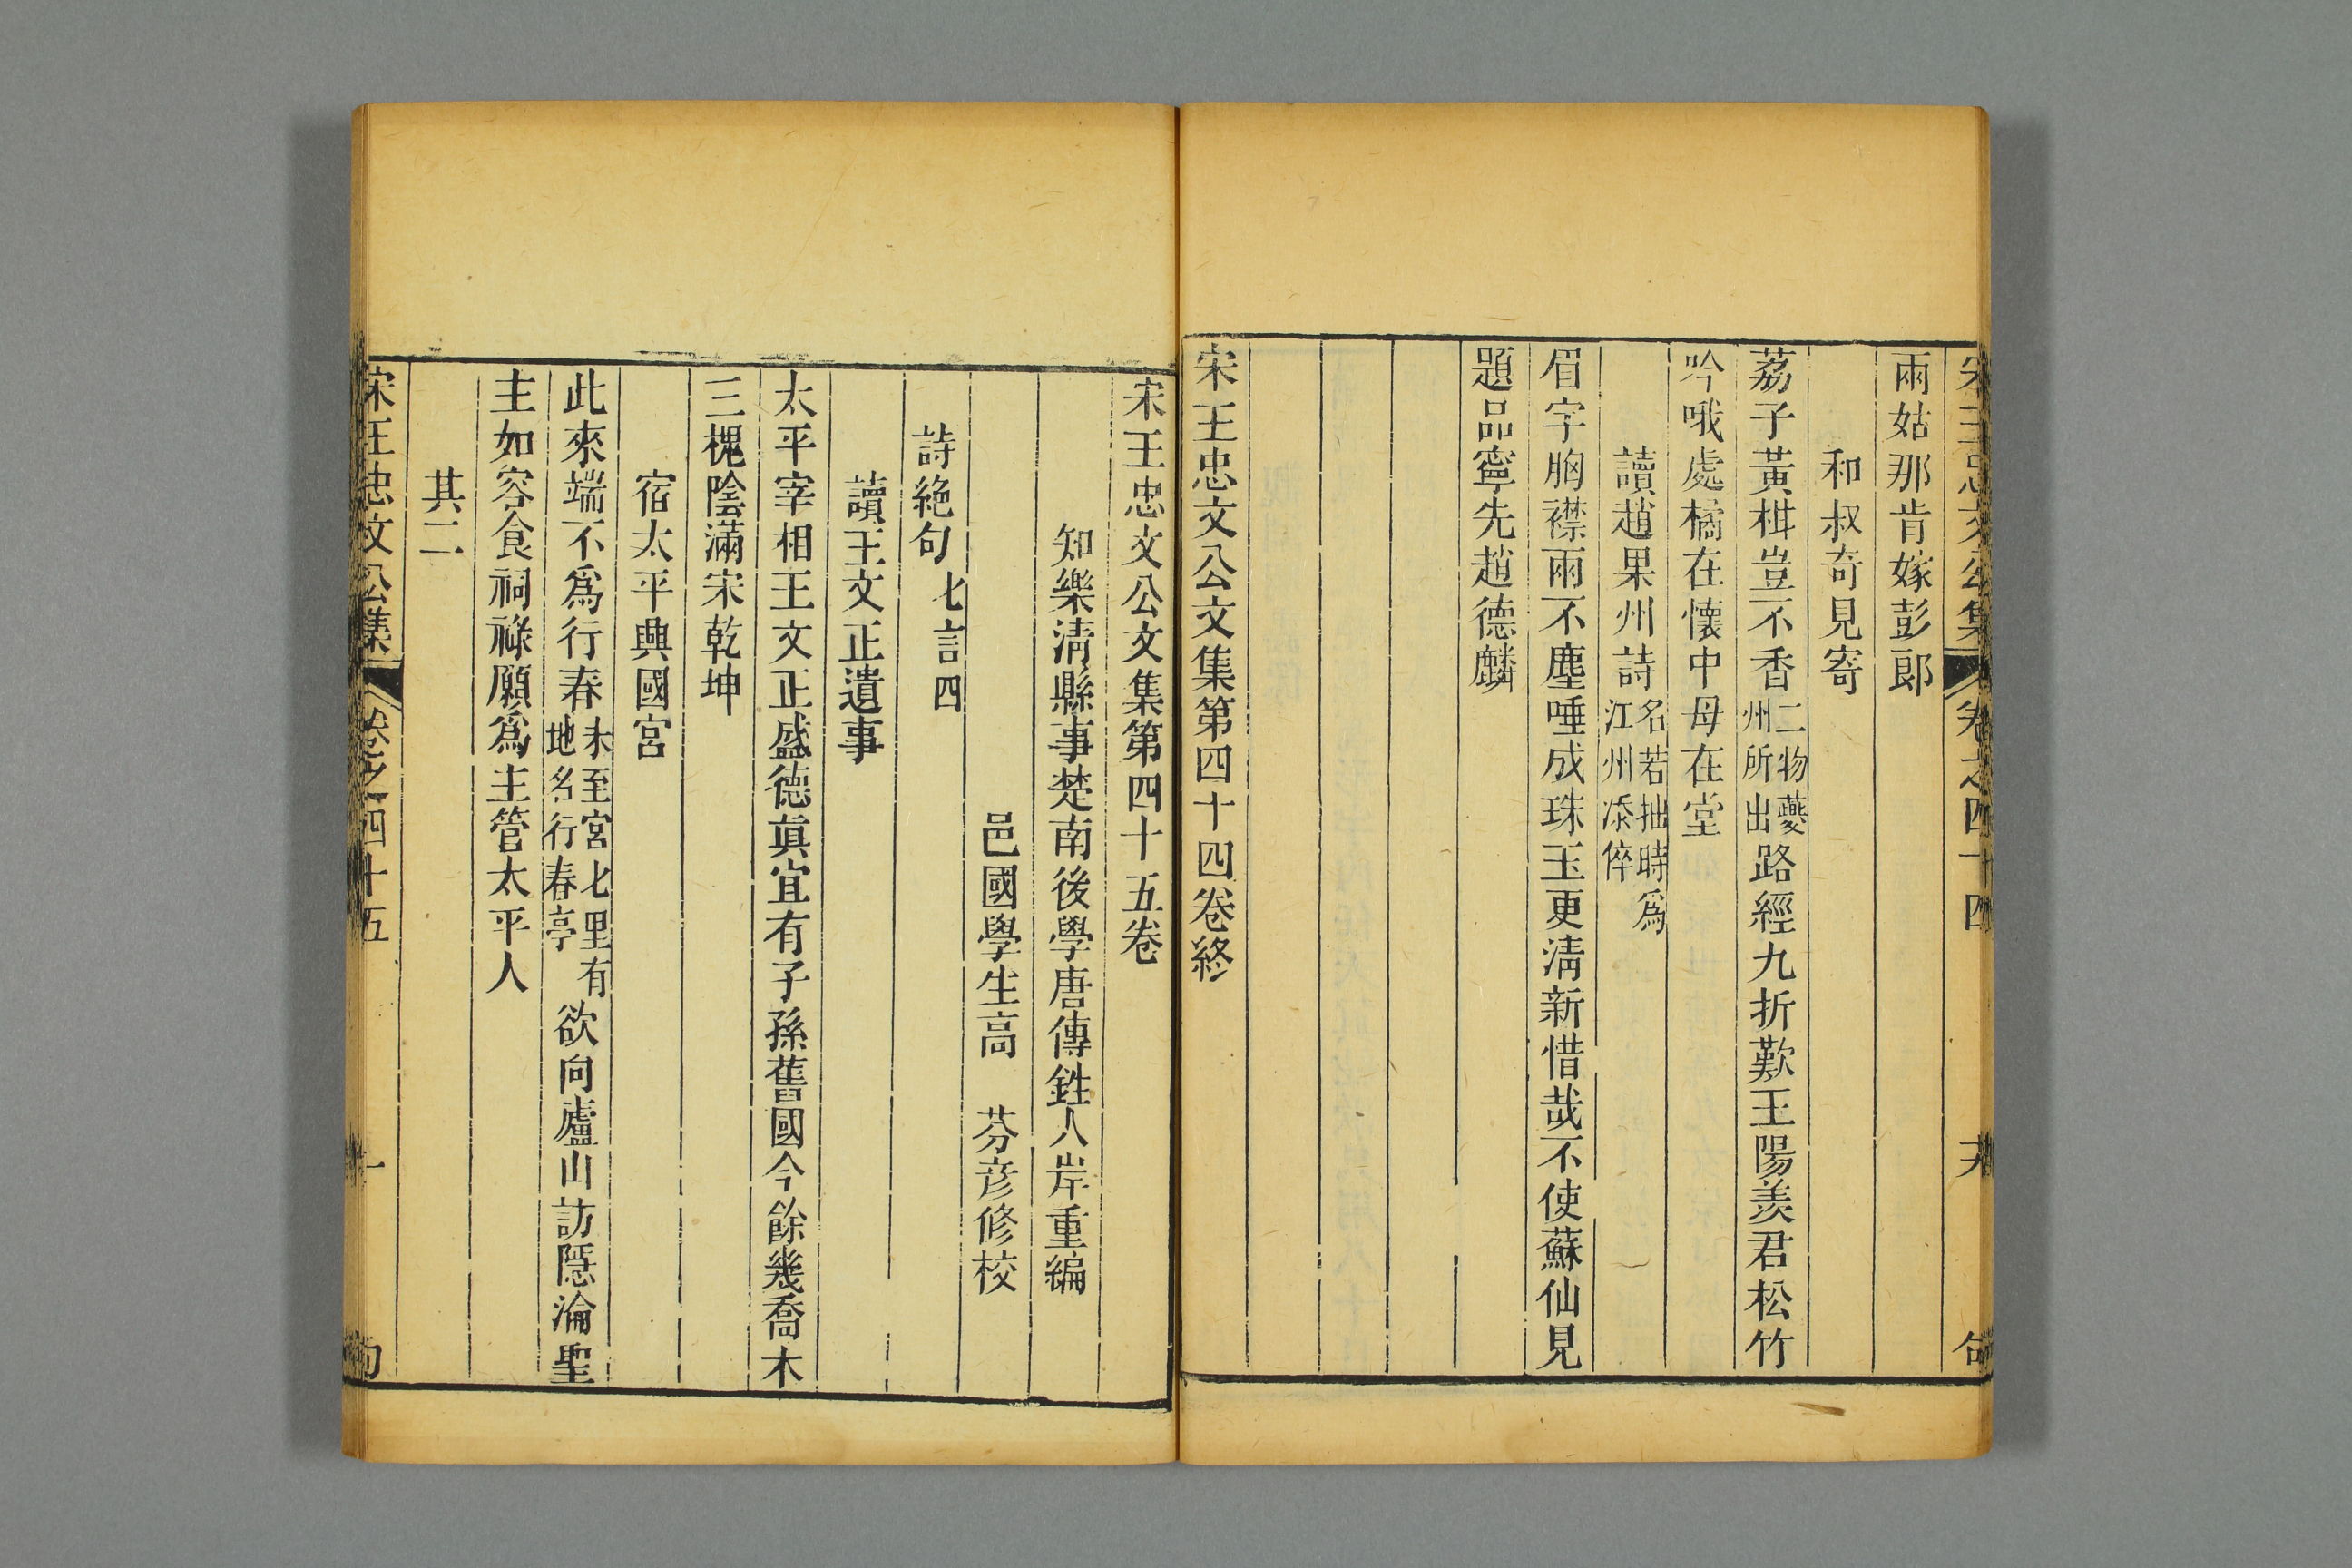 宋王忠文公集 卷之四十四
兩姑那肯嫁彭郎
和叔奇見寄
荔子黃柑豈不香二物夔州所出路經九折歎王陽羨君松竹
吟哦處橘在懷中母在堂
讀趙果州詩名若拙時爲江州添倅
眉宇胸襟雨不塵唾成珠玉更淸新惜哉不使蘇仙見
題品寧先趙德麟
宋王忠文公文集第四十四卷終
宋王忠文公文集第四十五卷
知樂淸縣事楚南後學唐傳鉎人岸重編
邑國學生高 芬彦修校
詩絶句 七言四
讀王文正遺事
太平宰相王文正盛德眞宜有子孫舊國今餘幾喬木
三槐陰滿宋乾坤
宿太平興國宮
此來端不爲行春未至宮七里有地名行春亭欲向廬山訪隱淪聖
主如容食祠祿願爲主管太平人
其二
宋王忠文公集 卷之四十五 一